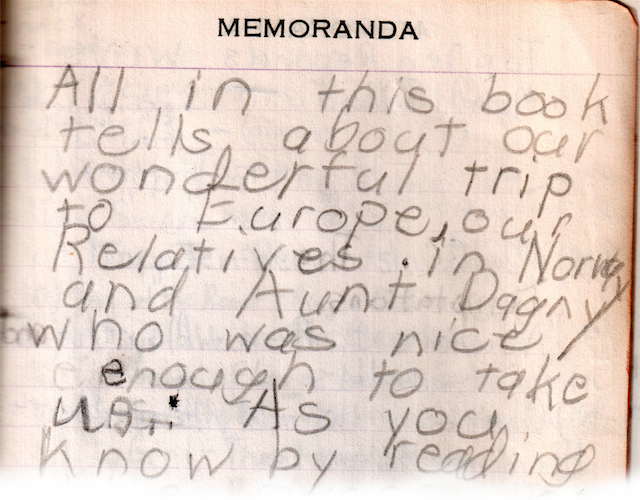 MEMORANDA
All in this book
tells about our
wonderful trip
to Europe, our
Relatives in Norway
and Aunt Dagny
who was nice
enough to take
us. As you
know by reading